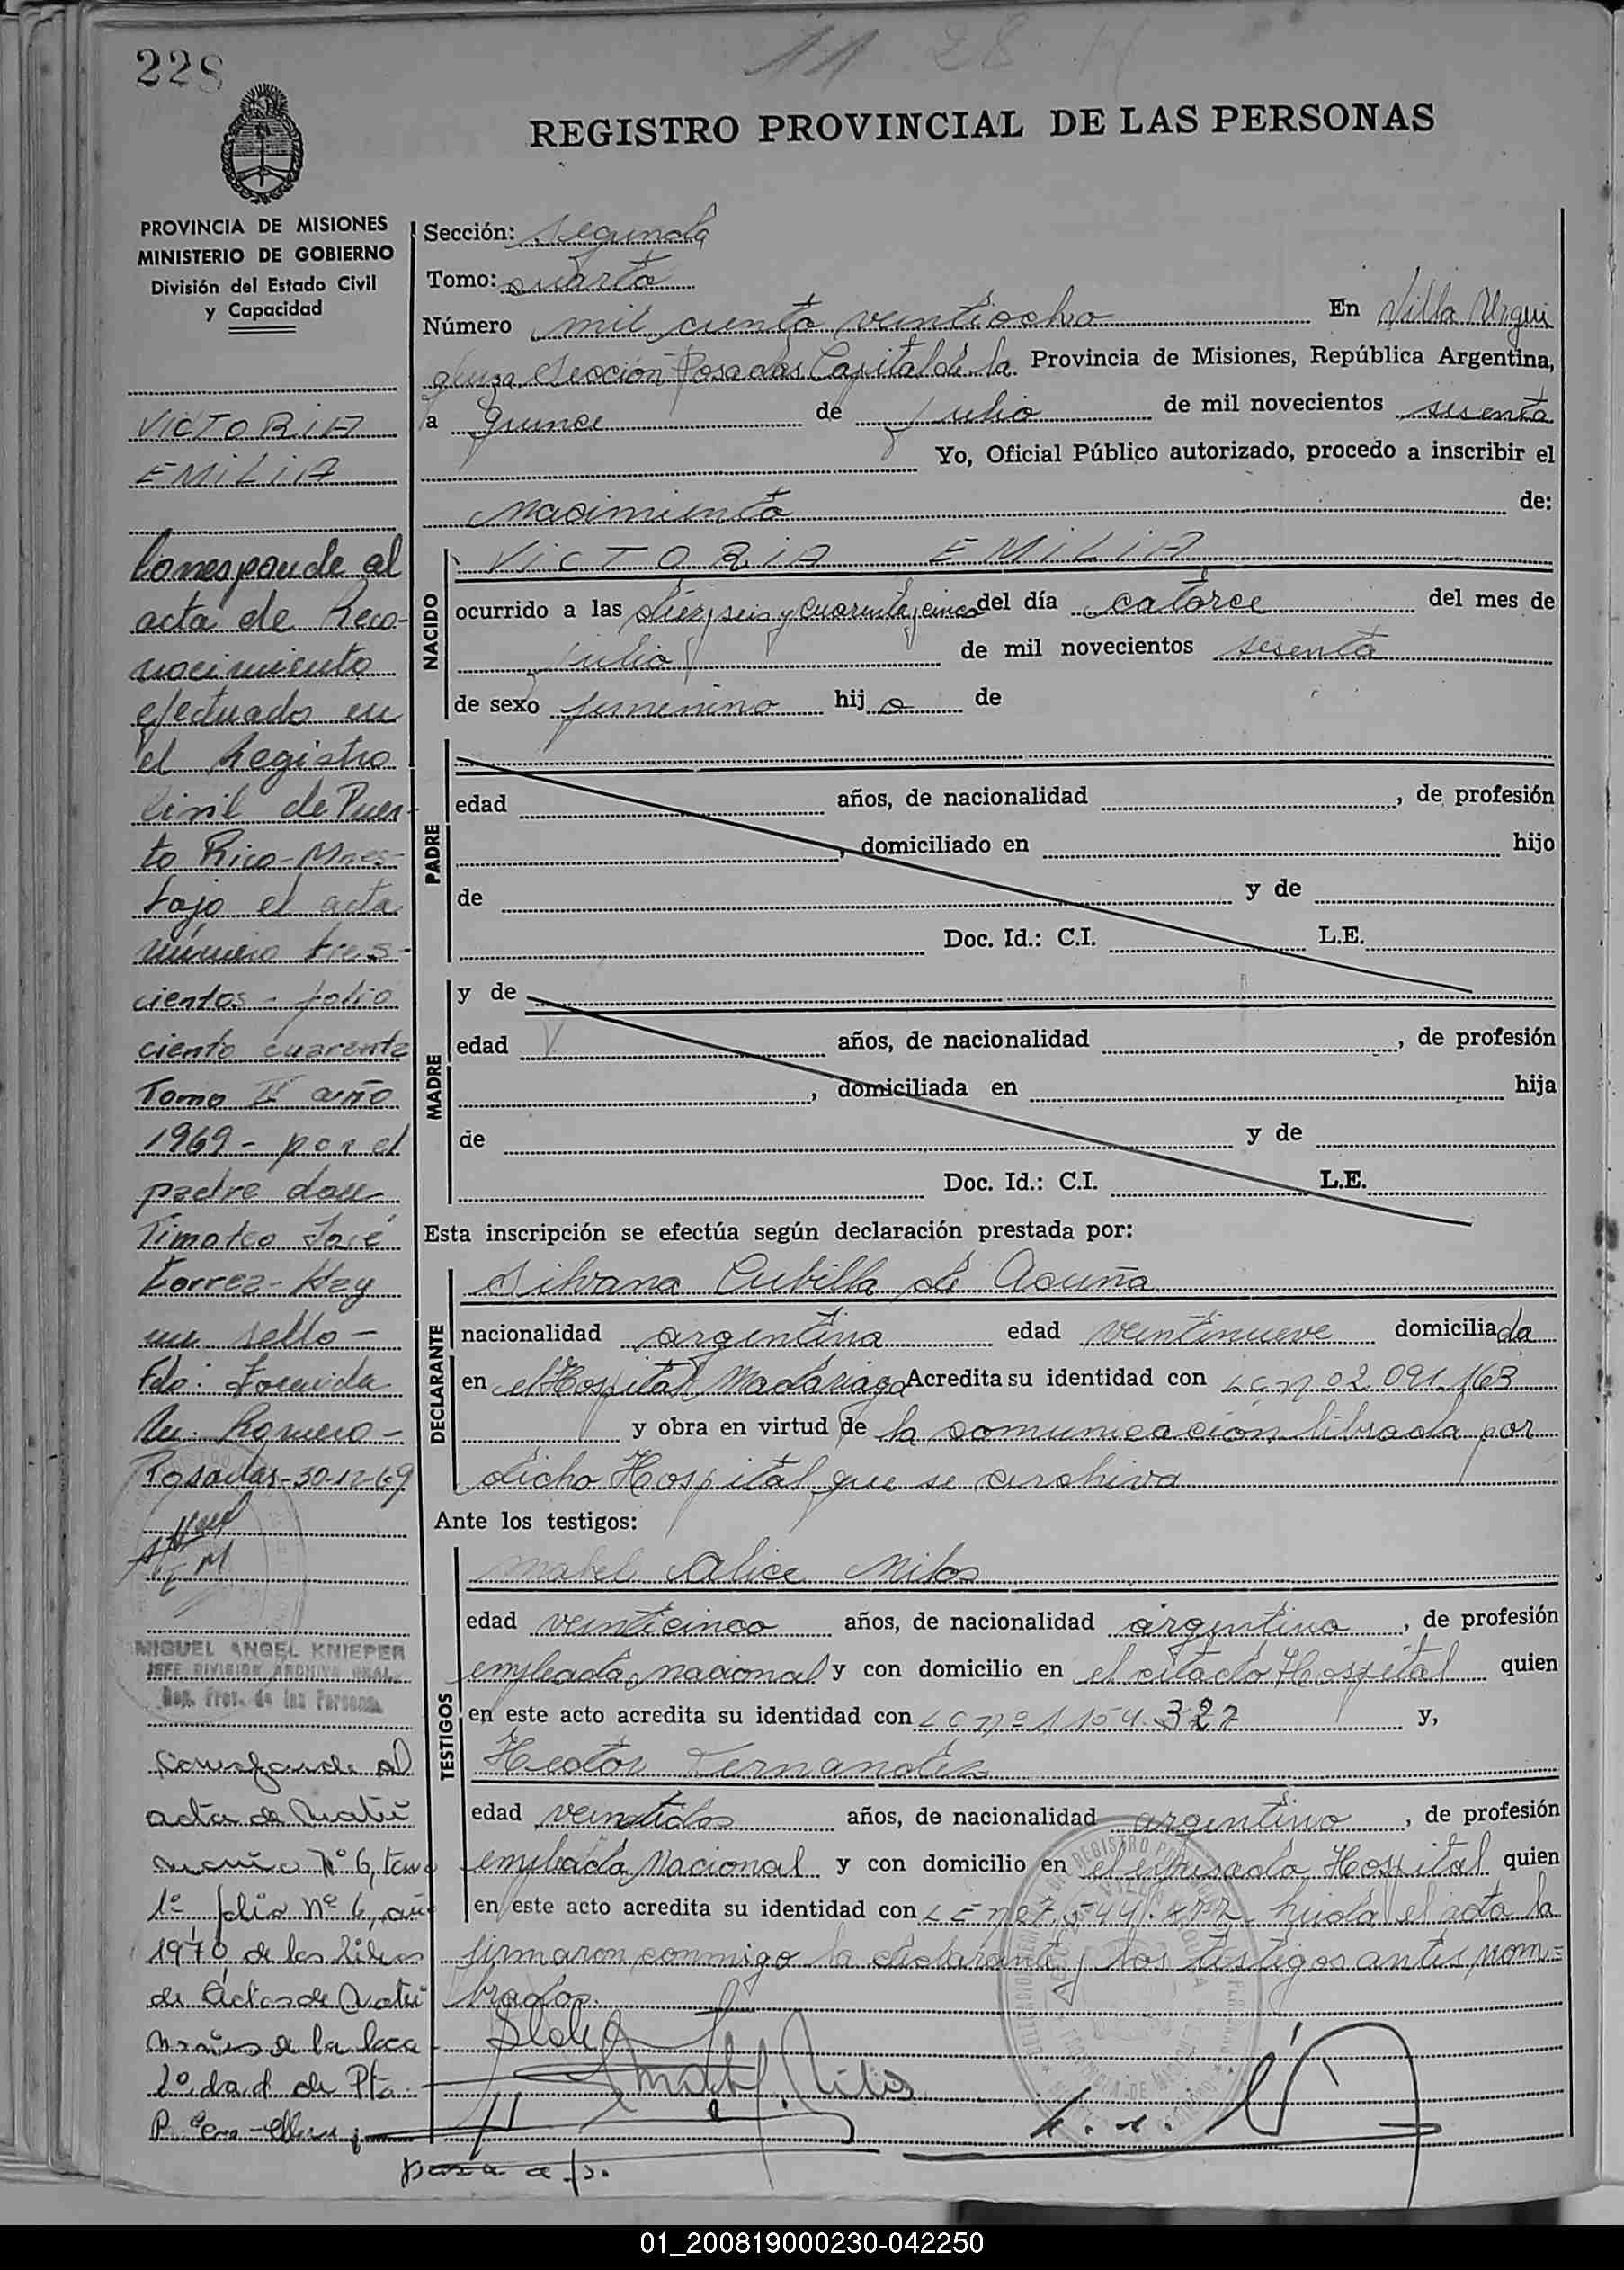 228
11 28 H
REGISTRO PROVINCIAL DE LAS PERSONAS
PROVINCIA DE MISIONES
MINISTERIO DE GOBIERNO
División del Estado Civil
y Capacidad
VICTORIA
EMILIA
Corresponde al
acta de Reco-
nocimiento
efectuado en
el Registro
Civil de Puer-
to Rico-Mnes-
bajo el acta
número tres-
cientos - folio
ciento cuarenta
Tomo II año
1969 - por el
padre don
Timoteo José
Torres - Hay
un sello -
Fdo:
Romero -
Posadas-30-12-69
MIGUEL ANGEL KNIEPER
JEFE DIVISION ARCHIVO GRAL.
Reg. Prov. de las Personas
Corresponde al
acta de Matri
monio Nº 6, tomo
1º folio Nº 6, año
1970 de los libros
de Actas de Matri
monios de la loca
lidad de Pto.
Sección: segunda
Tomo: cuarto
Número mil ciento veintiocho En Villa Urqui
guza Sección Posadas Capital de la Provincia de Misiones, República Argentina,
a quince de julio de mil novecientos sesenta
Yo, Oficial Público autorizado, procedo a inscribir el
nacimiento de:
NACIDO
VICTORIA EMILIA
ocurrido a las diez y seis y cuarenta y cinco del día catorce del mes de
julio de mil novecientos sesenta
de sexo femenino hija de
PADRE
edad años, de nacionalidad , de profesión
, domiciliado en hijo
de y de
Doc. Id.: C.I. L.E.
MADRE
y de
edad años, de nacionalidad , de profesión
, domiciliada en hija
de y de
Doc. Id.: C.I. L.E.
Esta inscripción se efectúa según declaración prestada por:
DECLARANTE
Silvana Cubilla de Acuña
nacionalidad argentina edad veintinueve domiciliada
en el Hospital Madariaga Acredita su identidad con L C nº 02.091.163
y obra en virtud de la comunicación librada por
dicho Hospital que se archiva
Ante los testigos:
TESTIGOS
Mabel Alice Milos
edad veinticinco años, de nacionalidad argentina , de profesión
empleada nacional y con domicilio en el citado Hospital quien
en este acto acredita su identidad con L C nº 1154.327 y,
Hector Fernandez
edad veintidos años, de nacionalidad argentino , de profesión
empleado Nacional y con domicilio en el expresado Hospital quien
en este acto acredita su identidad con L E nº 7.544. leida el acta la
firmaron conmigo la declarante y los testigos antes nom=
brados.
01_200819000230-042250